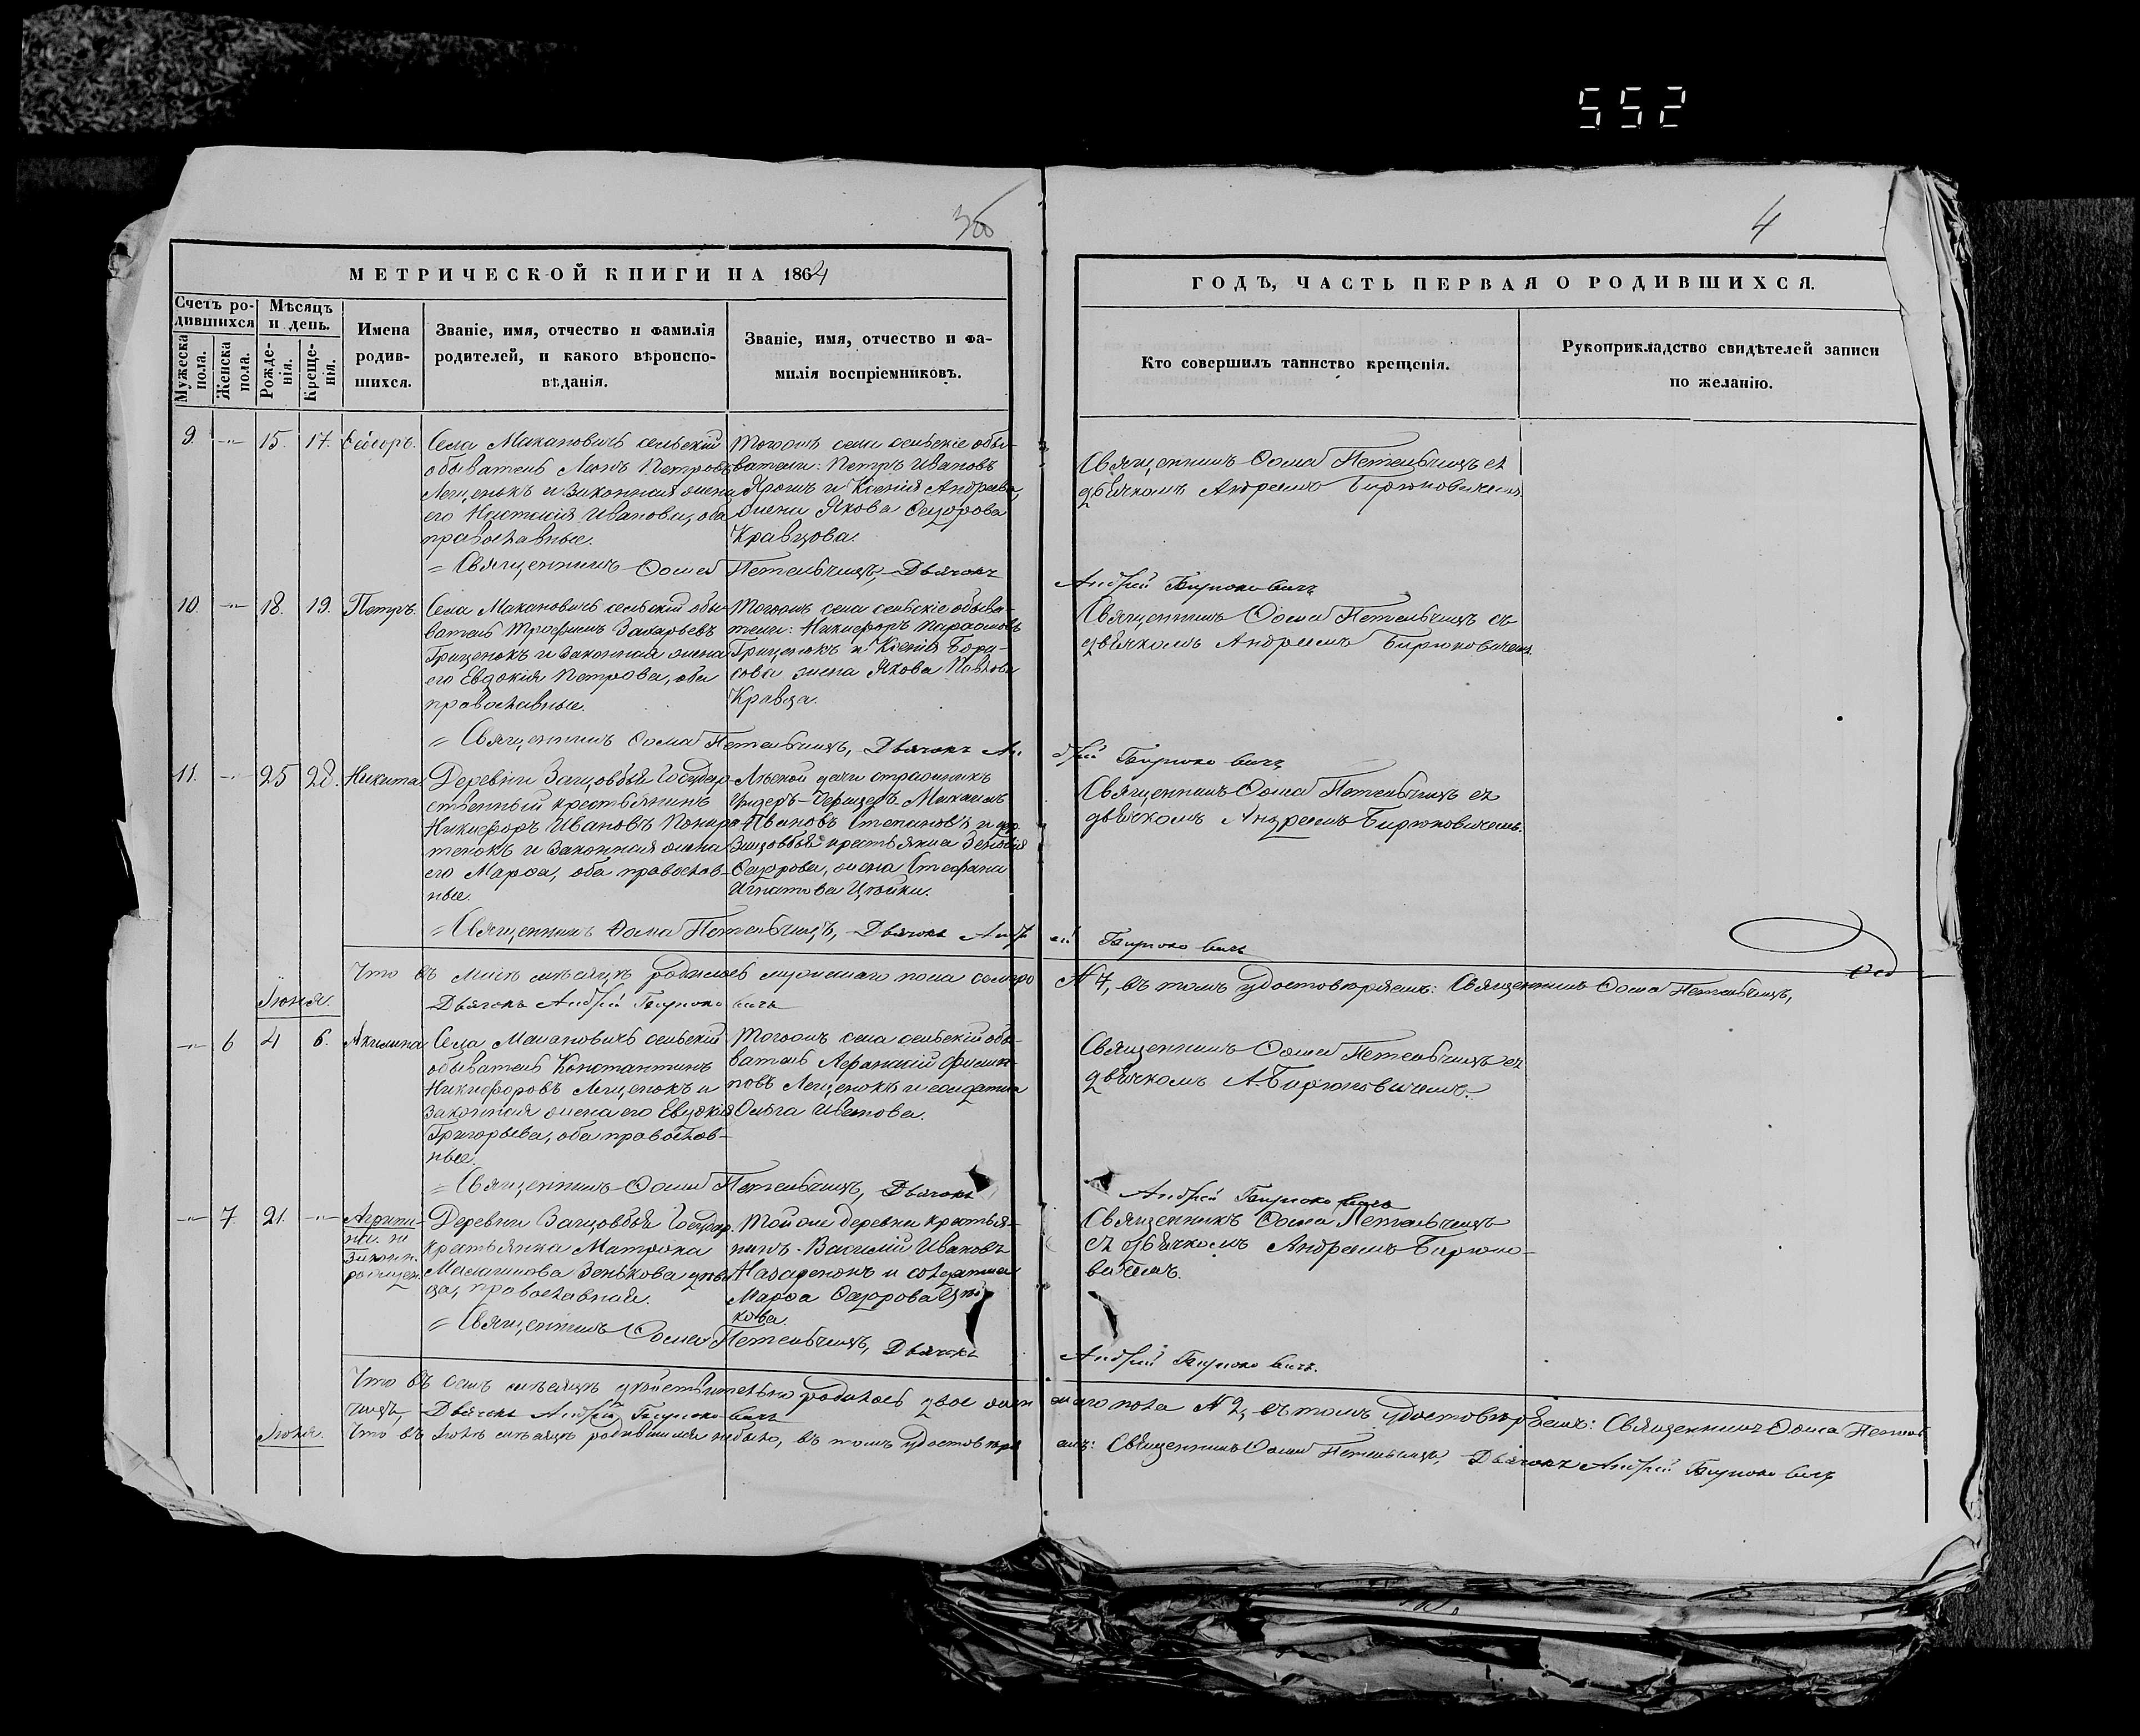 552
36
4
МЕТРИЧЕСКОЙ КНИГИ НА 1864
ГОДЪ, ЧАСТЬ ПЕРВАЯ О РОДИВШИХСЯ.
Счетъ родившихся
Мужеска пола.
Женска пола.
Мѣсяцъ и день.
Рожденія.
Крещенія.
Имена родившихся.
Званіе, имя, отчество и фамилія
родителей, и какого вѣроиспо-
вѣданія.
Званіе, имя, отчество и фа-
милія воспріемниковъ.
Кто совершилъ таинство крещенія.
Рукоприкладство свидѣтелей записи
по желанію.
9. 15. 17.
Села Макановичъ сельскій
обыватель Петровъ
Лещенокъ и законная жена
его Иванова, оба
православные.
Тогожъ села сельскіе обы-
ватели: Петръ Ивановъ
Ярошъ и Ксенія Андреева,
жена Якова Ѳедорова
Кравцова.
Священникъ Ѳома Петельчицъ съ
дьячкомъ Андреемъ Бирюковичемъ
Священникъ Ѳома Петельчицъ, Дьячокъ
Андрей Бирюковичъ
10. 18. 19. Петръ.
Села Макановичъ сельскій обы-
ватель Трофимъ Захарьевъ
Гриценокъ и законная жена
его Евдокія Петрова, оба
православные.
Тогожъ села сельскіе обыва-
тели: Никифоръ
Гриценокъ и Ксенія Бори-
сова жена Якова Павлова
Кравца.
Священникъ Ѳома Петельчицъ съ
дьячкомъ Андреемъ Бирюковичемъ.
Священникъ Ѳома Петельчицъ, Дьячокъ Ан-
дрей Бирюковичъ
11. 25 28. Никита
Деревни Защовбья Государ-
ственный крестьянинъ
Никифоръ Ивановъ
и законная жена
его Марѳа, оба православ-
ные.
Лѣсной дачи
унтеръ-офицеръ Михаилъ
Ивановъ Степановъ и
Защовбья крестьянка Зеновія
Ѳедорова, жена Стефана
Игнатова Цубики.
Священникъ Ѳома Петельчицъ съ
дьячкомъ Андреемъ Бирюковичемъ.
Священникъ Ѳома Петельчицъ, Дьячокъ Андр
ей Бирюковичъ
Что въ маѣ мѣсяцѣ родилось мужескаго пола
№ 4, въ томъ удостовѣряемъ: Священникъ Ѳома Петельчицъ,
Дьячокъ Андрей Бирюковичъ
Іюня.
6 4 6. Акилина
Села Макановичъ сельскій
обыватель Константинъ
Никифоровъ Лещенокъ и
законная жена его Евдокія
Григорьева, оба православ-
ные.
Тогожъ села сельскій обы-
ватель
Лещенокъ и солдатка
Ольга Иванова.
Священникъ Ѳома Петельчицъ съ
дьячкомъ А. Бирюковичемъ.
Священникъ Ѳома Петельчицъ, Дьячокъ
Андрей Бирюковичъ
7 21.
Деревни Защовбья Государ.
крестьянка Матрона
Зенькова дѣви-
ца, православная.
Тойже деревни крестья-
нинъ Василій Ивановъ
Назаренокъ и солдатка
Марѳа Ѳедорова
кова.
Священникъ Ѳома Петельчицъ
съ дьячкомъ Андреемъ Бирюко-
вичемъ.
Священникъ Ѳома Петельчицъ, Дьячокъ
Андрей Бирюковичъ.
Что въ семъ мѣсяцѣ дѣйствительно родилось двое жен
скаго пола № 2, въ томъ удостовѣряемъ: Священникъ Ѳома Петель
чицъ, Дьячокъ Андрей Бирюковичъ
Іюля.
Что въ Іюлѣ мѣсяцѣ родившихся небыло, въ томъ удостовѣря
емъ: Священникъ Ѳома Петельчицъ, Дьячокъ Андрей Бирюковичъ